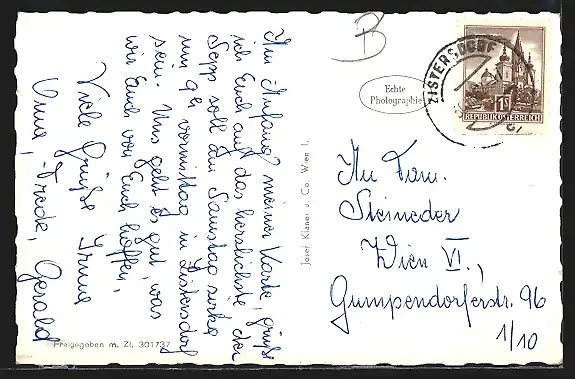 Am Anfang meiner Karte, grüße
ich Euch auf das herzlichste, der
Sepp soll am Samstag zirka
um 9h vormittag in Zistersdorf
sein. Uns geht es gut, was
wir Euch von Euch hoffen,
Viele Grüße Irma
Oma, Frede, Gerald
Freigegeben m. Zl. 301737
Josef Klaner u. Co. Wien I.
B
Echte
Photographie
ZISTERSDORF
1S
REPUBLIK ÖSTERREICH
An Fam.
Steineder
Wien VI.,
Gumpendorferstr. 96
1/10